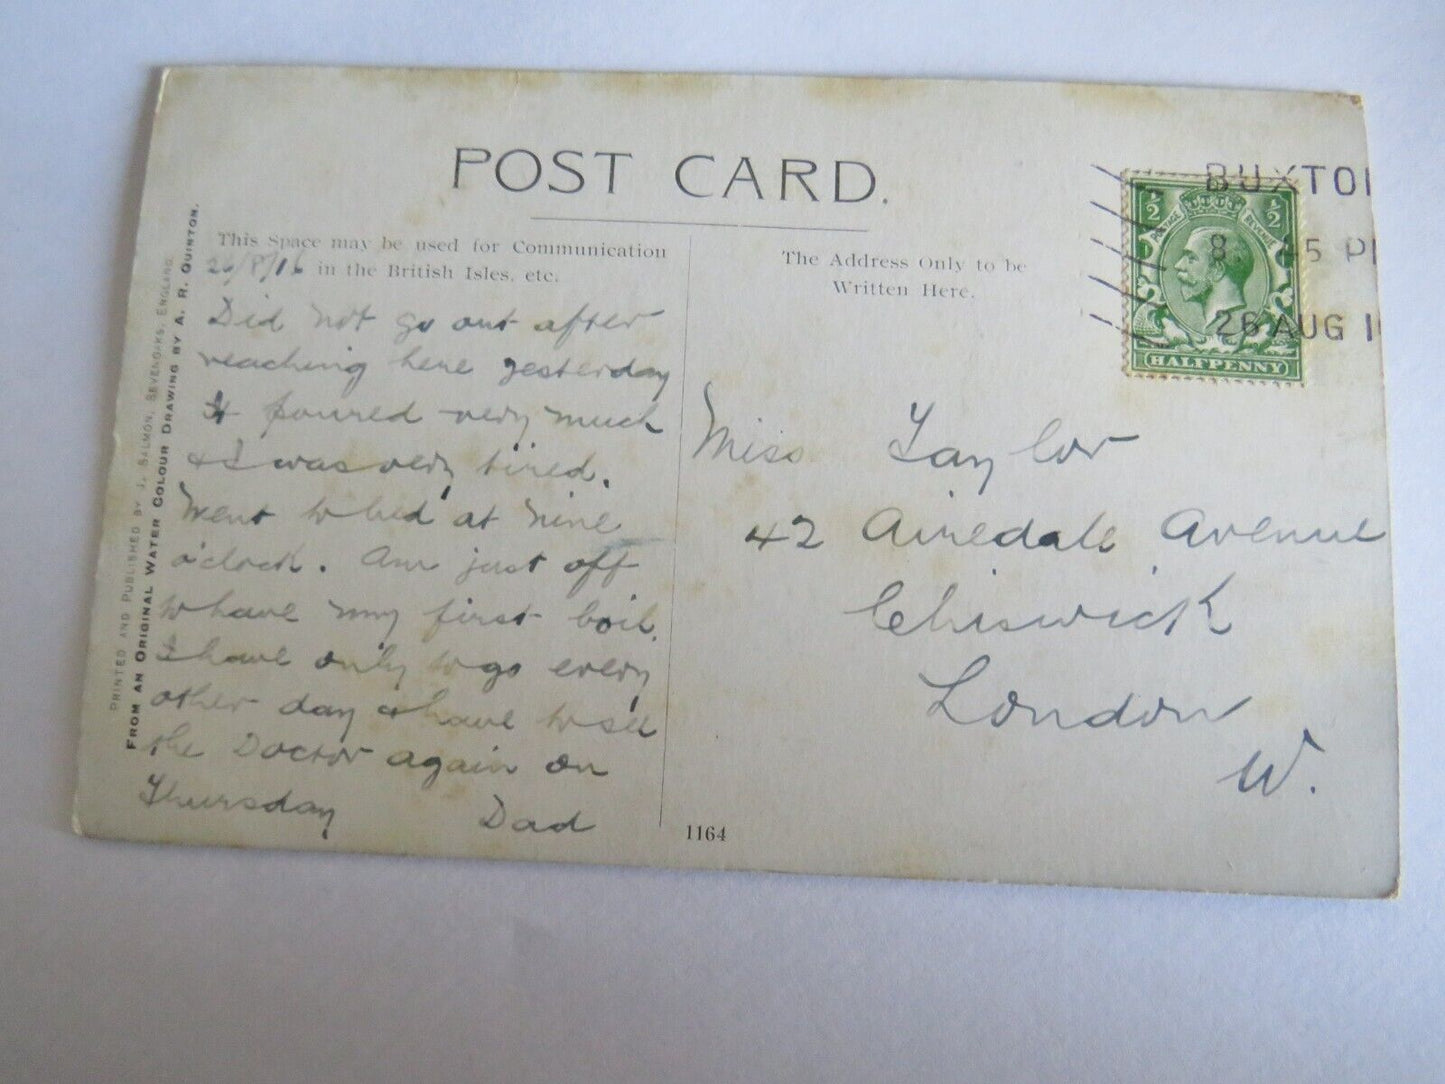 POST CARD.
This Space may be used for Communication
in the British Isles, etc.
The Address Only to be
Written Here.
PRINTED AND PUBLISHED BY J. SALMON, SEVENOAKS, ENGLAND.
FROM AN ORIGINAL WATER COLOUR DRAWING BY A. R. QUINTON.
26/8/16
Did not go out after
reaching here yesterday
It poured very much
& I was very tired.
Went to bed at nine
o'clock. Am just off
to have my first boil.
I have only to go every
other day & have to see
the Doctor again on
Thursday
Dad
1164
BUXTON
8. 45 P
26 AUG 1
POSTAGE REVENUE
½ ½
HALFPENNY
Miss Taylor
42 Airedale Avenue
Chiswick
London
W.